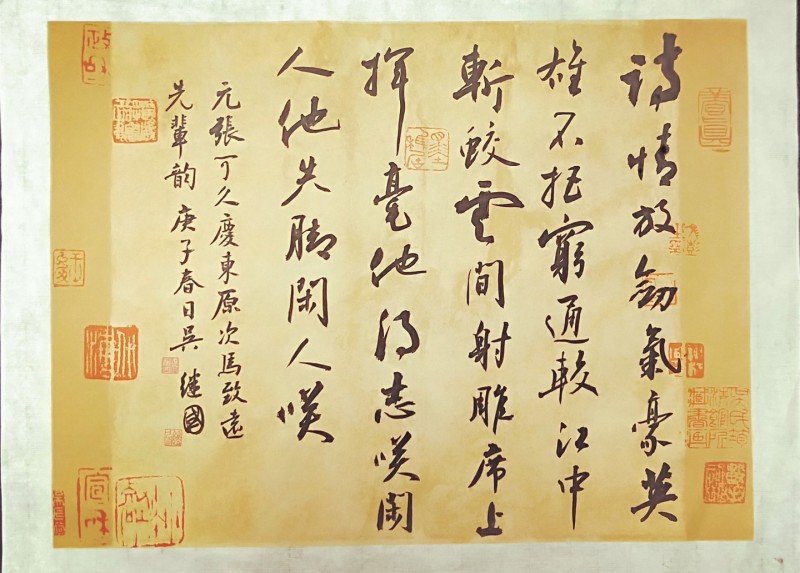 詩情放劒氣豪英
雄不把窮通較江中
斬蛟雲間射雕席上
揮毫他得志咲閑
人他失脚閑人咲
元張可久慶東原次馬致遠
先輩韵庚子春日吳継國